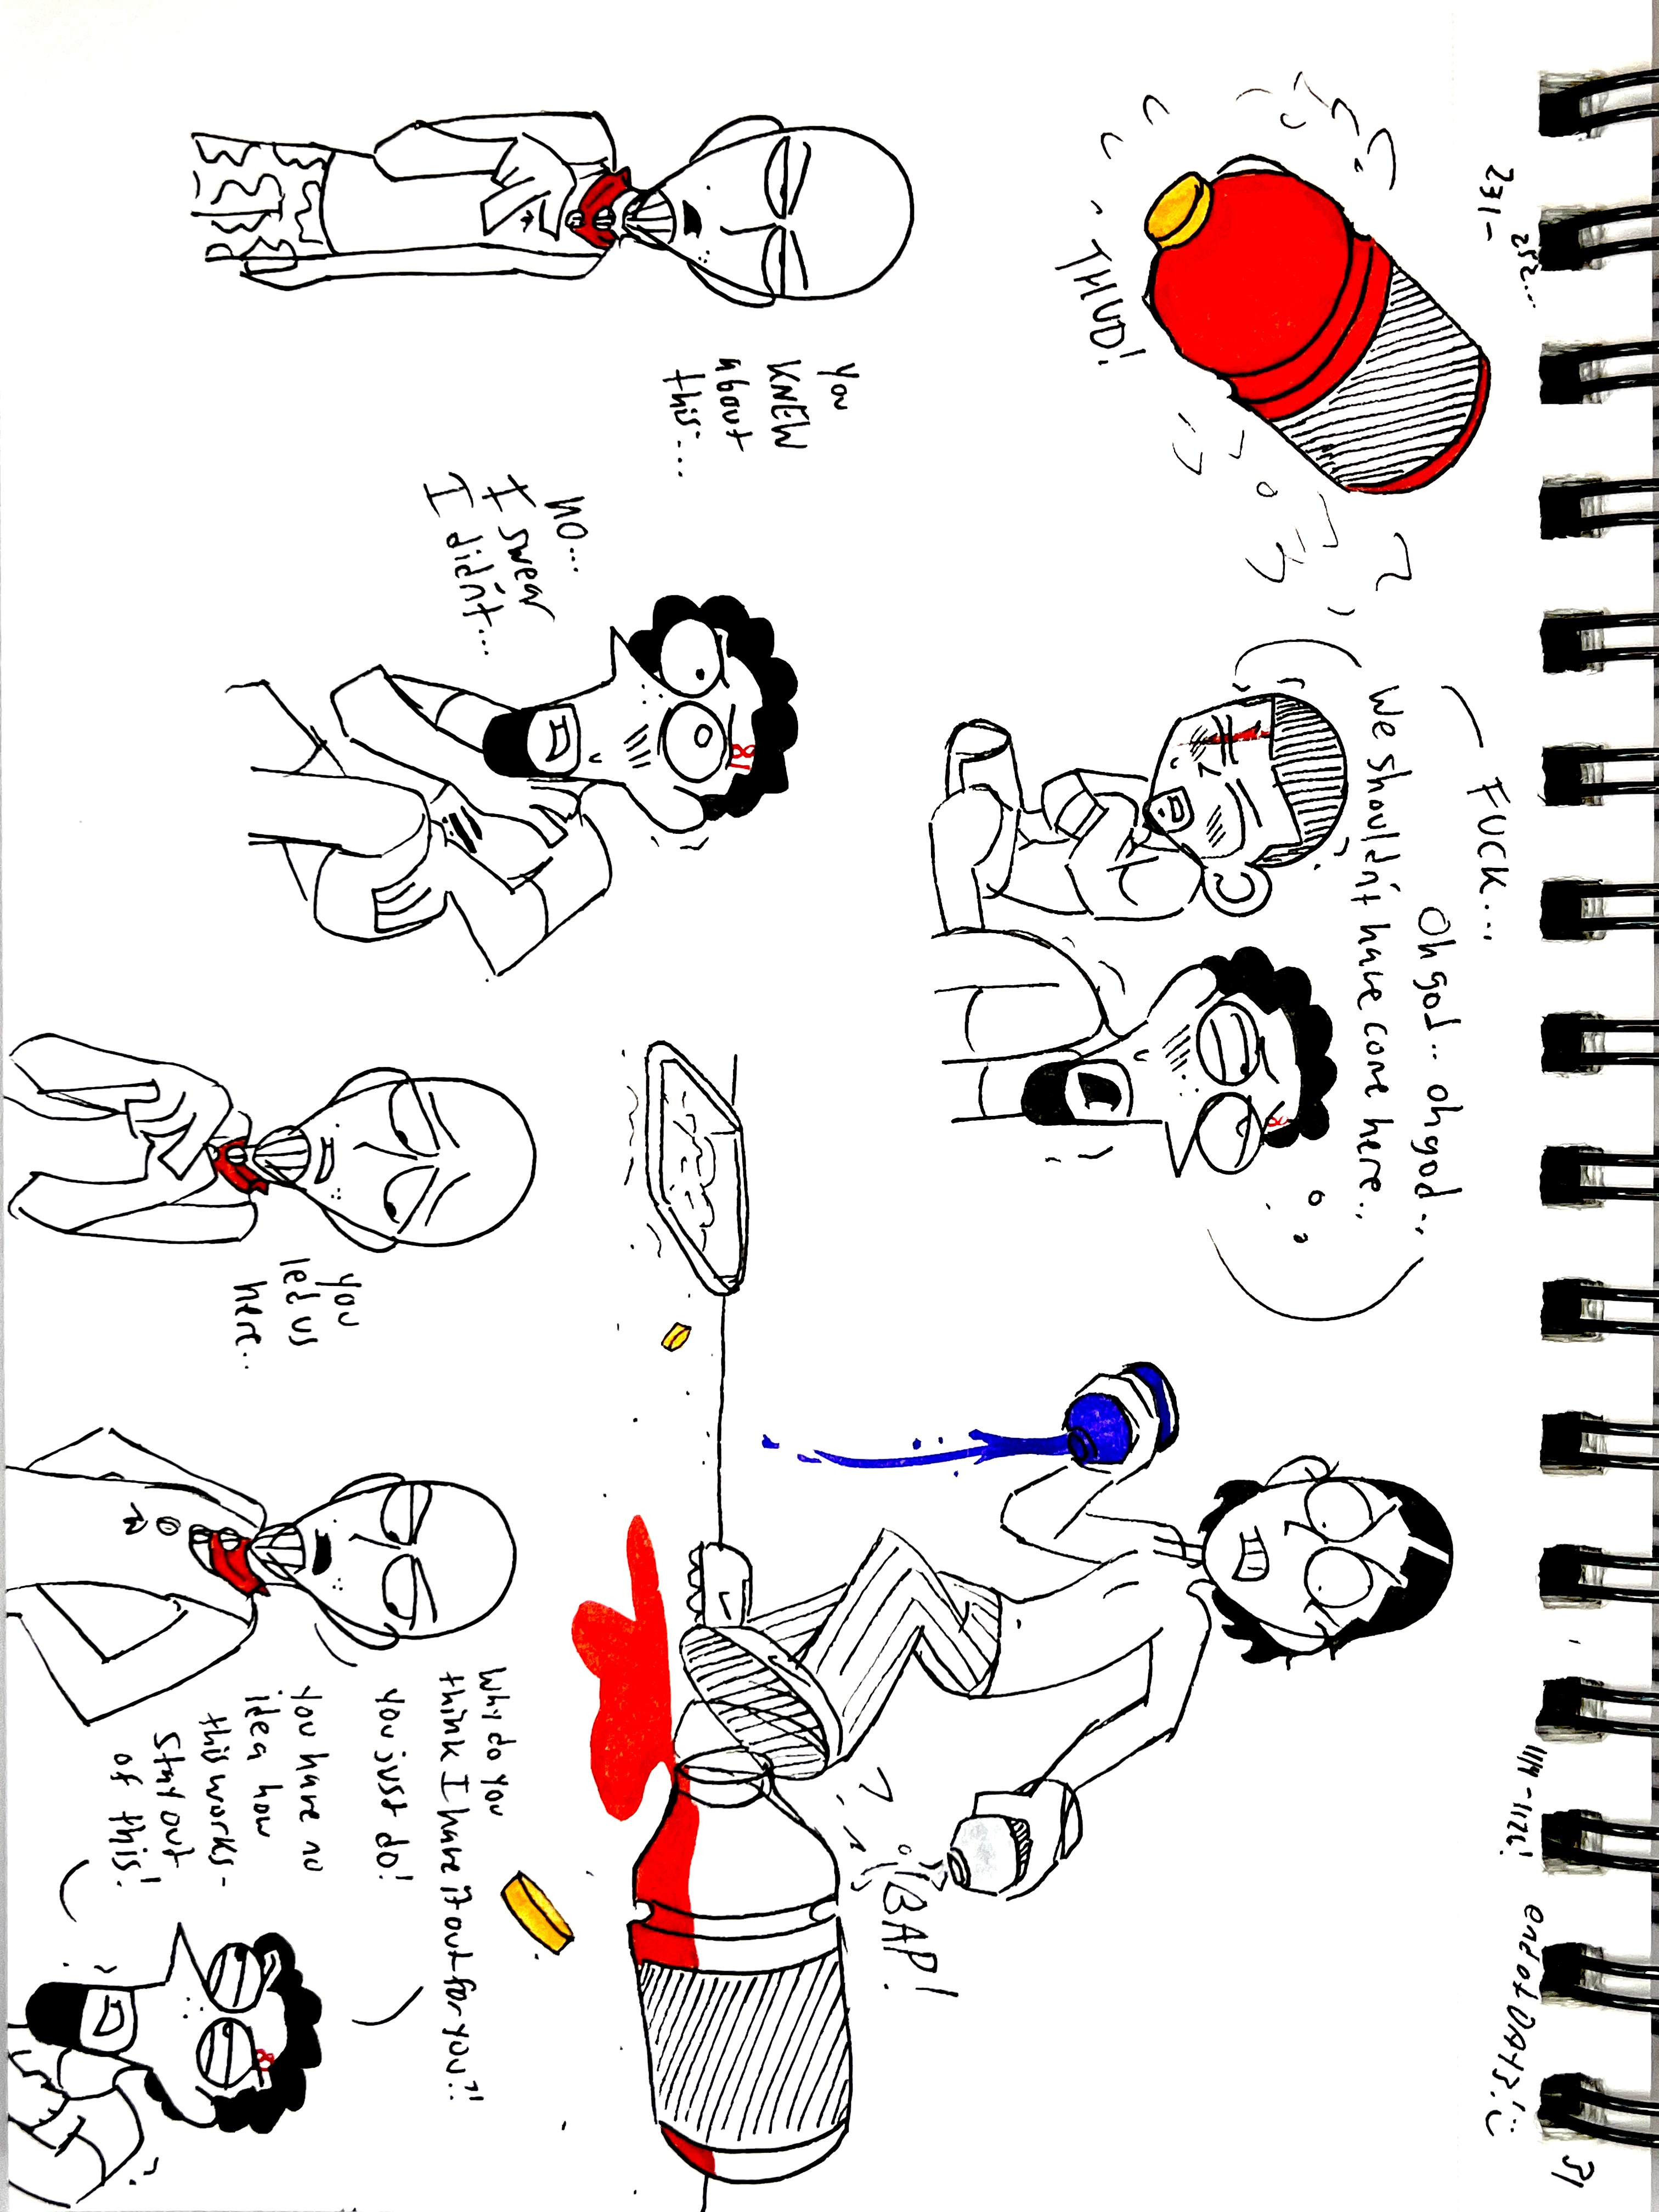 31
231-
252...
11/4-1126!
end of DAY3! :)
FUCK...
Oh god.. oh god..
We shouldn't have come here..
THUD!
BAP!
You
KNEW
about
this....
NO...
I swear
I didn't...
81
You
led us
here..
Why do you
think I have it out for you?!
You just do!
You have no
idea how
this works-
Stay out
of this!